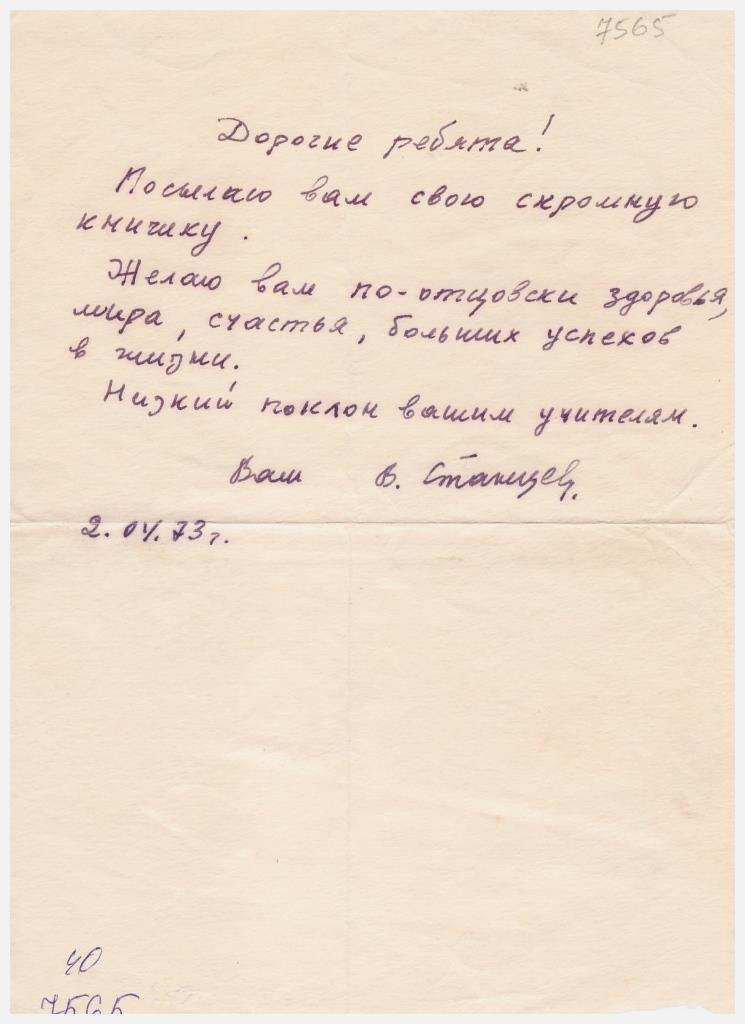 7565
Дорогие ребята!
Посылаю вам свою скромную
книжку.
Желаю вам по-отцовски здоровья,
мира, счастья, больших успехов
в жизни.
Низкий поклон вашим учителям.
Ваш В. Станцев.
2.04.73г.
40
7565